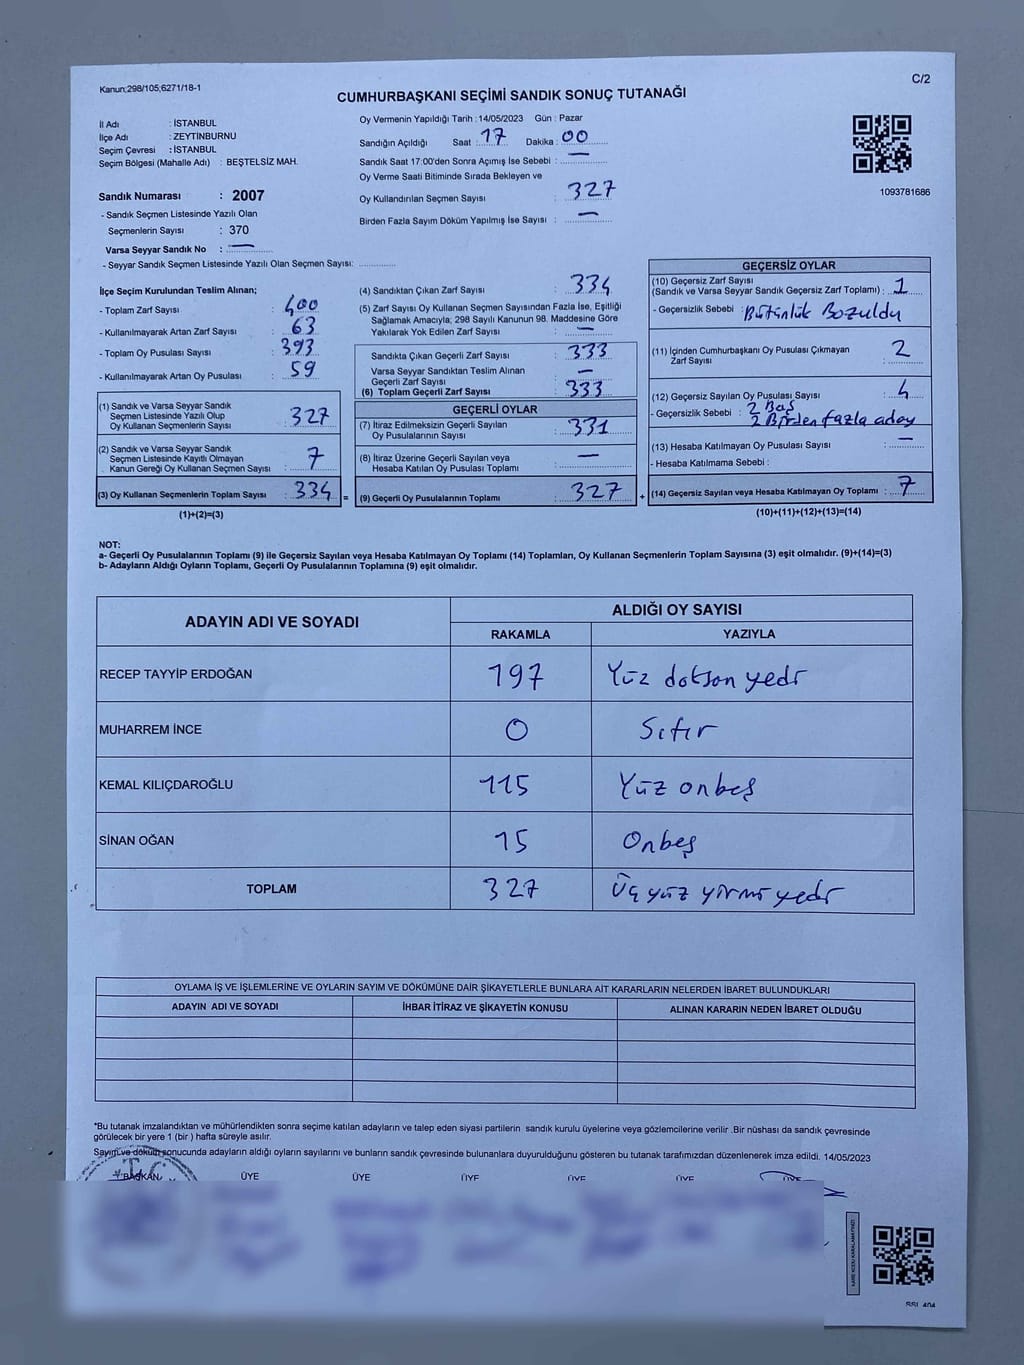 Kanun;298/105;6271/18-1
C/2
CUMHURBAŞKANI SEÇİMİ SANDIK SONUÇ TUTANAĞI
İl Adı : İSTANBUL
İlçe Adı : ZEYTİNBURNU
Seçim Çevresi : İSTANBUL
Seçim Bölgesi (Mahalle Adı) : BEŞTELSİZ MAH.
Sandık Numarası : 2007
- Sandık Seçmen Listesinde Yazılı Olan
Seçmenlerin Sayısı : 370
Varsa Seyyar Sandık No : —
- Seyyar Sandık Seçmen Listesinde Yazılı Olan Seçmen Sayısı:
Oy Vermenin Yapıldığı Tarih : 14/05/2023 Gün : Pazar
Sandığın Açıldığı Saat : 17 Dakika : 00
Sandık Saat 17:00'den Sonra Açımış İse Sebebi : —
Oy Verme Saati Bitiminde Sırada Bekleyen ve
Oy Kullandırılan Seçmen Sayısı : 327
Birden Fazla Sayım Döküm Yapılmış İse Sayısı : —
1093781686
İlçe Seçim Kurulundan Teslim Alınan;
- Toplam Zarf Sayısı : 400
- Kullanılmayarak Artan Zarf Sayısı : 63
- Toplam Oy Pusulası Sayısı : 393
- Kullanılmayarak Artan Oy Pusulası : 59
(1) Sandık ve Varsa Seyyar Sandık
Seçmen Listesinde Yazılı Olup
Oy Kullanan Seçmenlerin Sayısı : 327
(2) Sandık ve Varsa Seyyar Sandık
Seçmen Listesinde Kayıtlı Olmayan
Kanun Gereği Oy Kullanan Seçmen Sayısı : 7
(3) Oy Kullanan Seçmenlerin Toplam Sayısı : 334 =
(1)+(2)=(3)
(4) Sandıktan Çıkan Zarf Sayısı : 334
(5) Zarf Sayısı Oy Kullanan Seçmen Sayısından Fazla İse, Eşitliği
Sağlamak Amacıyla; 298 Sayılı Kanunun 98. Maddesine Göre
Yakılarak Yok Edilen Zarf Sayısı : —
Sandıkta Çıkan Geçerli Zarf Sayısı : 333
Varsa Seyyar Sandıktan Teslim Alınan
Geçerli Zarf Sayısı : —
(6) Toplam Geçerli Zarf Sayısı : 333
GEÇERLİ OYLAR
(7) İtiraz Edilmeksizin Geçerli Sayılan
Oy Pusulalarının Sayısı : 331
(8) İtiraz Üzerine Geçerli Sayılan veya
Hesaba Katılan Oy Pusulası Toplamı : —
(9) Geçerli Oy Pusulalarının Toplamı : 327 +
GEÇERSİZ OYLAR
(10) Geçersiz Zarf Sayısı
(Sandık ve Varsa Seyyar Sandık Geçersiz Zarf Toplamı) : 1
- Geçersizlik Sebebi : Bütünlük Bozuldu
(11) İçinden Cumhurbaşkanı Oy Pusulası Çıkmayan
Zarf Sayısı : 2
(12) Geçersiz Sayılan Oy Pusulası Sayısı : 4
- Geçersizlik Sebebi : 2 Boş
2 Birden fazla aday
(13) Hesaba Katılmayan Oy Pusulası Sayısı : —
- Hesaba Katılmama Sebebi :
(14) Geçersiz Sayılan veya Hesaba Katılmayan Oy Toplamı : 7
(10)+(11)+(12)+(13)=(14)
NOT:
a- Geçerli Oy Pusulalarının Toplamı (9) ile Geçersiz Sayılan veya Hesaba Katılmayan Oy Toplamı (14) Toplamları, Oy Kullanan Seçmenlerin Toplam Sayısına (3) eşit olmalıdır. (9)+(14)=(3)
b- Adayların Aldığı Oyların Toplamı, Geçerli Oy Pusulalarının Toplamına (9) eşit olmalıdır.
ADAYIN ADI VE SOYADI
ALDIĞI OY SAYISI
RAKAMLA YAZIYLA
RECEP TAYYİP ERDOĞAN 197 Yüz doksan yedi
MUHARREM İNCE 0 Sıfır
KEMAL KILIÇDAROĞLU 115 Yüz onbeş
SİNAN OĞAN 15 Onbeş
TOPLAM 327 Üç yüz yirmi yedi
OYLAMA İŞ VE İŞLEMLERİNE VE OYLARIN SAYIM VE DÖKÜMÜNE DAİR ŞİKAYETLERLE BUNLARA AİT KARARLARIN NELERDEN İBARET BULUNDUKLARI
ADAYIN ADI VE SOYADI İHBAR İTİRAZ VE ŞİKAYETİN KONUSU ALINAN KARARIN NEDEN İBARET OLDUĞU
*Bu tutanak imzalandıktan ve mühürlendikten sonra seçime katılan adayların ve talep eden siyasi partilerin sandık kurulu üyelerine veya gözlemcilerine verilir .Bir nüshası da sandık çevresinde
görülecek bir yere 1 (bir ) hafta süreyle asılır.
Sayım ve döküm sonucunda adayların aldığı oyların sayılarını ve bunların sandık çevresinde bulunanlara duyurulduğunu gösteren bu tutanak tarafımızdan düzenlenerek imza edildi. 14/05/2023
BAŞKAN ÜYE ÜYE ÜYE ÜYE ÜYE ÜYE